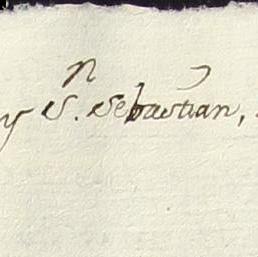 y S.ⁿ Sebastian,